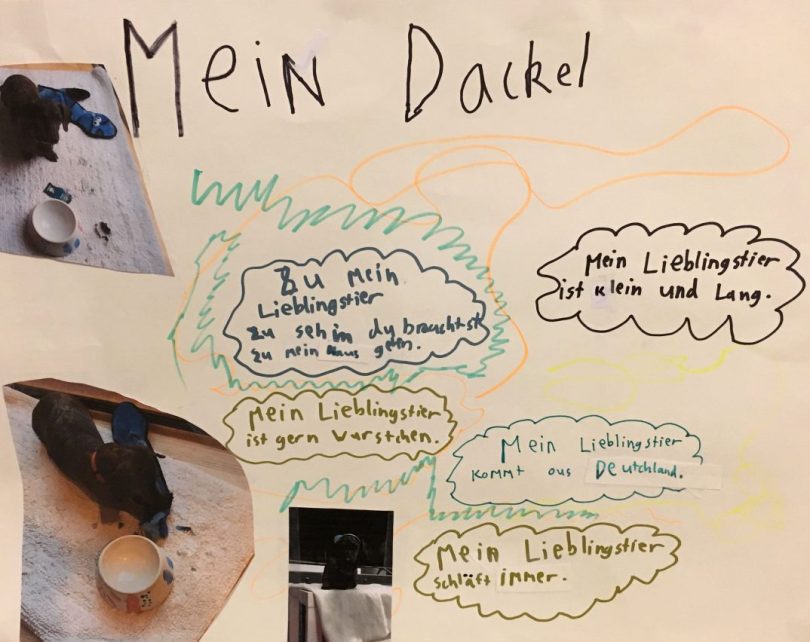 Mein Dackel
Mein Lieblingstier
ist klein und Lang.
Zu mein
Lieblingstier
zu sehin du brauchtst
zu mein Haus gehn.
Mein Lieblingstier
ist gern Wurstchen.
Mein Lieblingstier
kommt aus Deutchland.
Mein Lieblingstier
schläft immer.